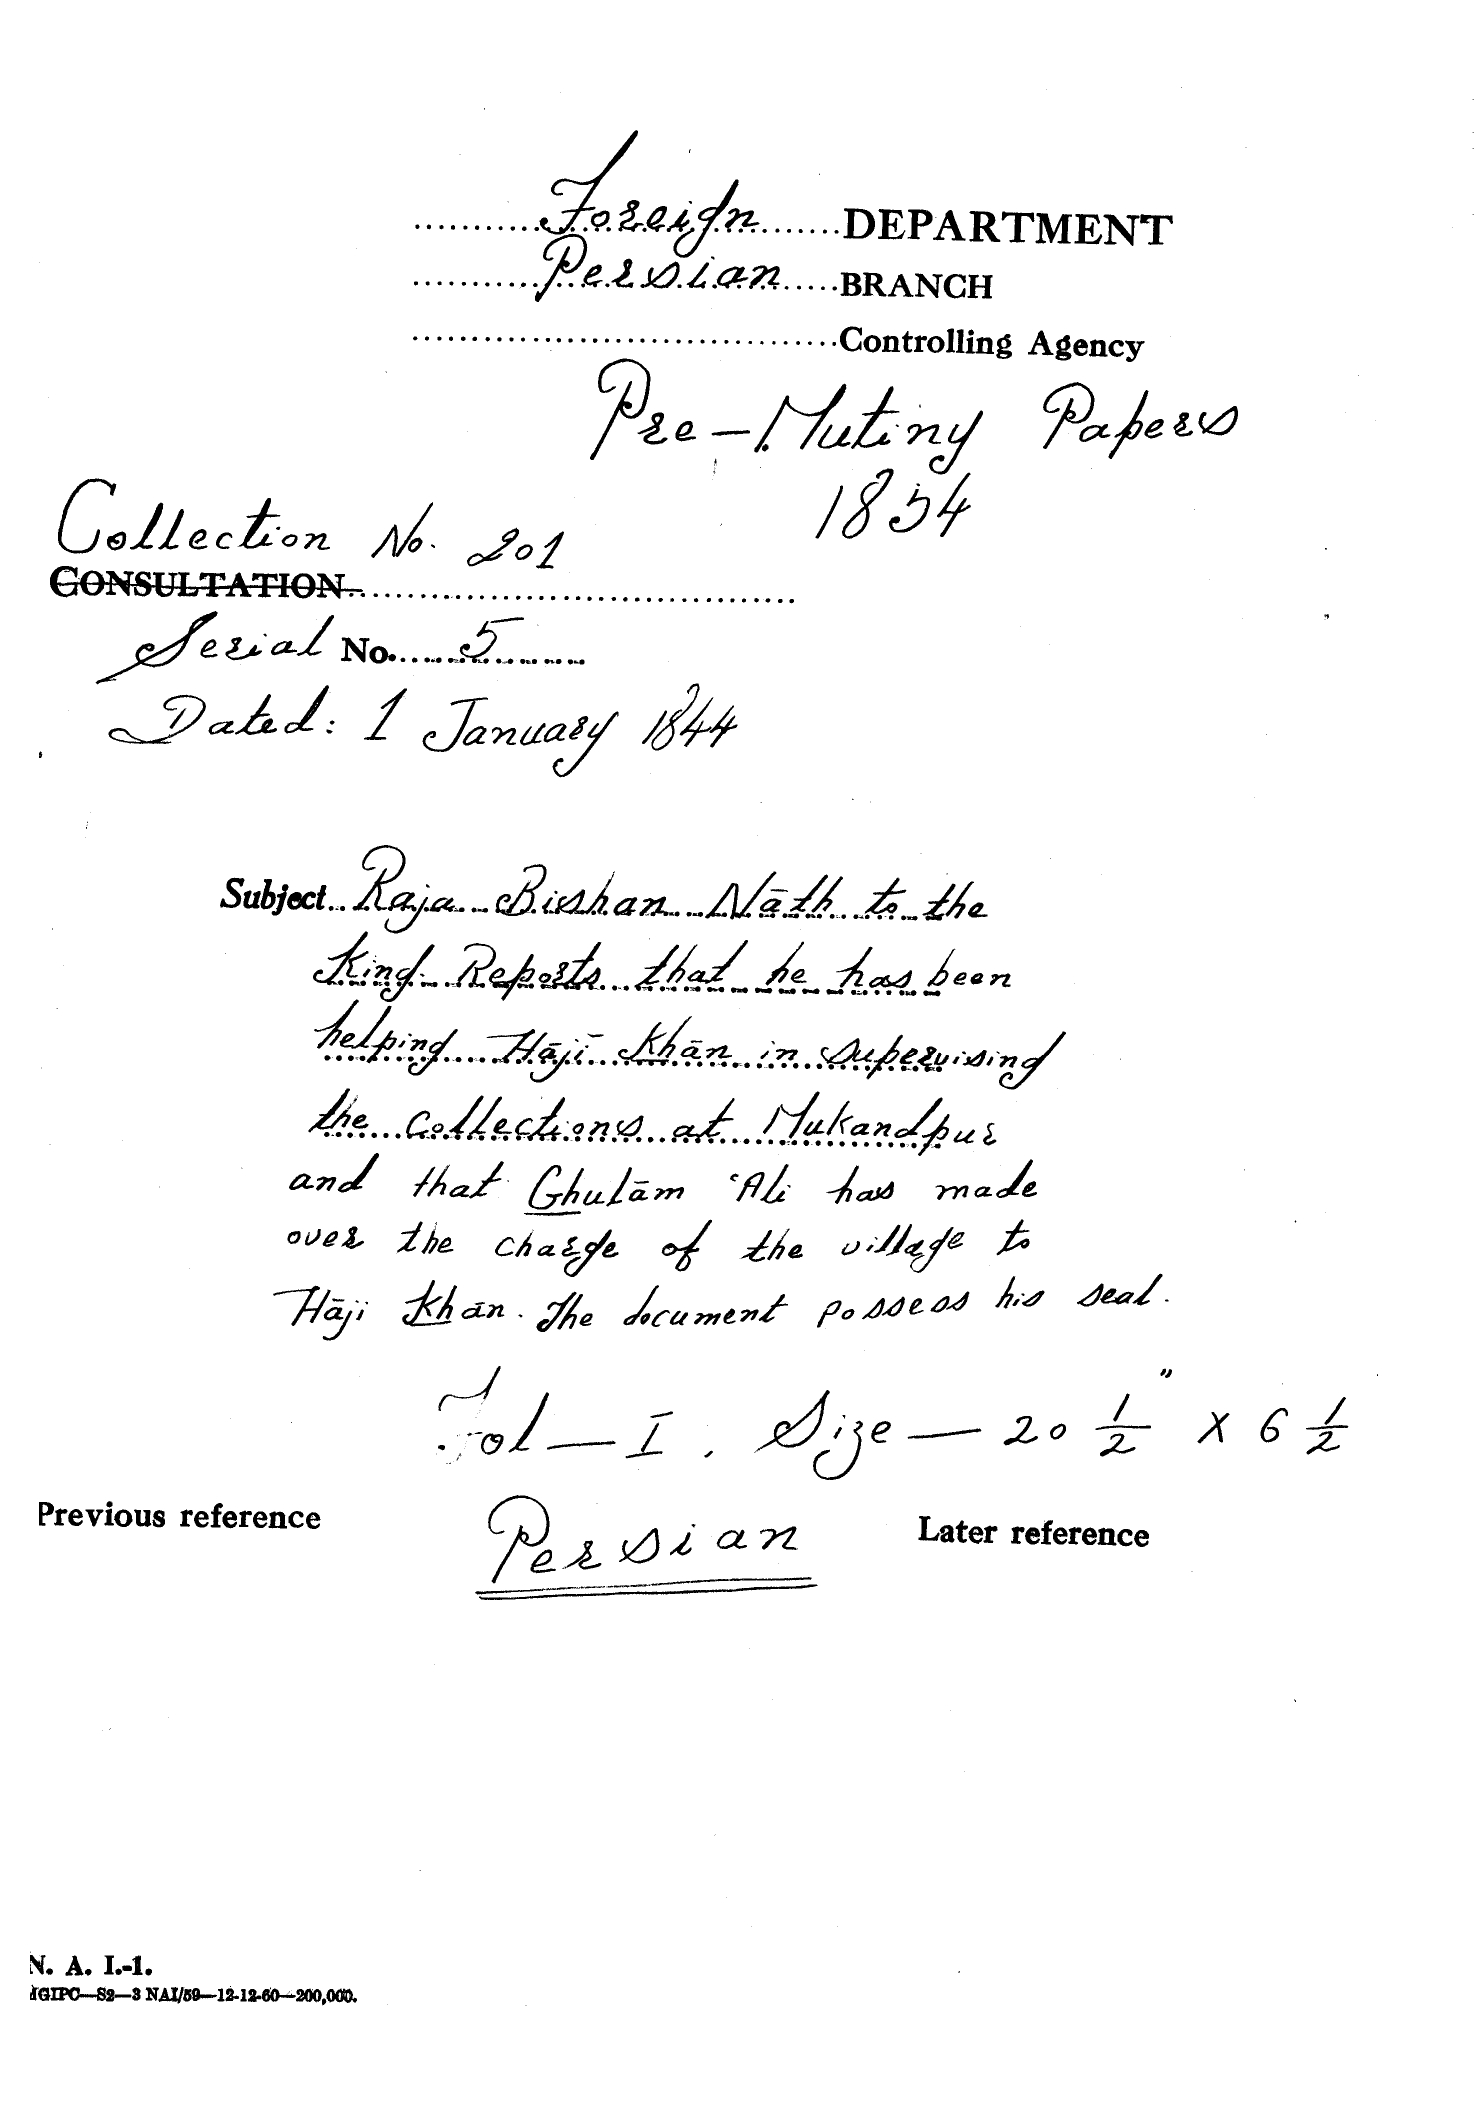 ...........Foreign........DEPARTMENT
...........Persian.....BRANCH
....................................Controlling Agency
Pre-Mutiny Papers
1854
Collection No. 201
CONSULTATION......................................
Serial No......5..........
Dated: 1 January 1844
Subject...Raja Bishan Nāth to the
King. Reports that he has been
helping Hājī Khān in supervising
the collections at Mukandpur
and that Ghulām 'Ali has made
over the charge of the village to
Hāji Khān. The document possess his seal.
Fol — I. Size — 20 1/2" x 6 1/2
Previous reference Persian Later reference
N. A. I.-1.
MGIPC—S2—3 NAI/59—12-12-60—200,000.